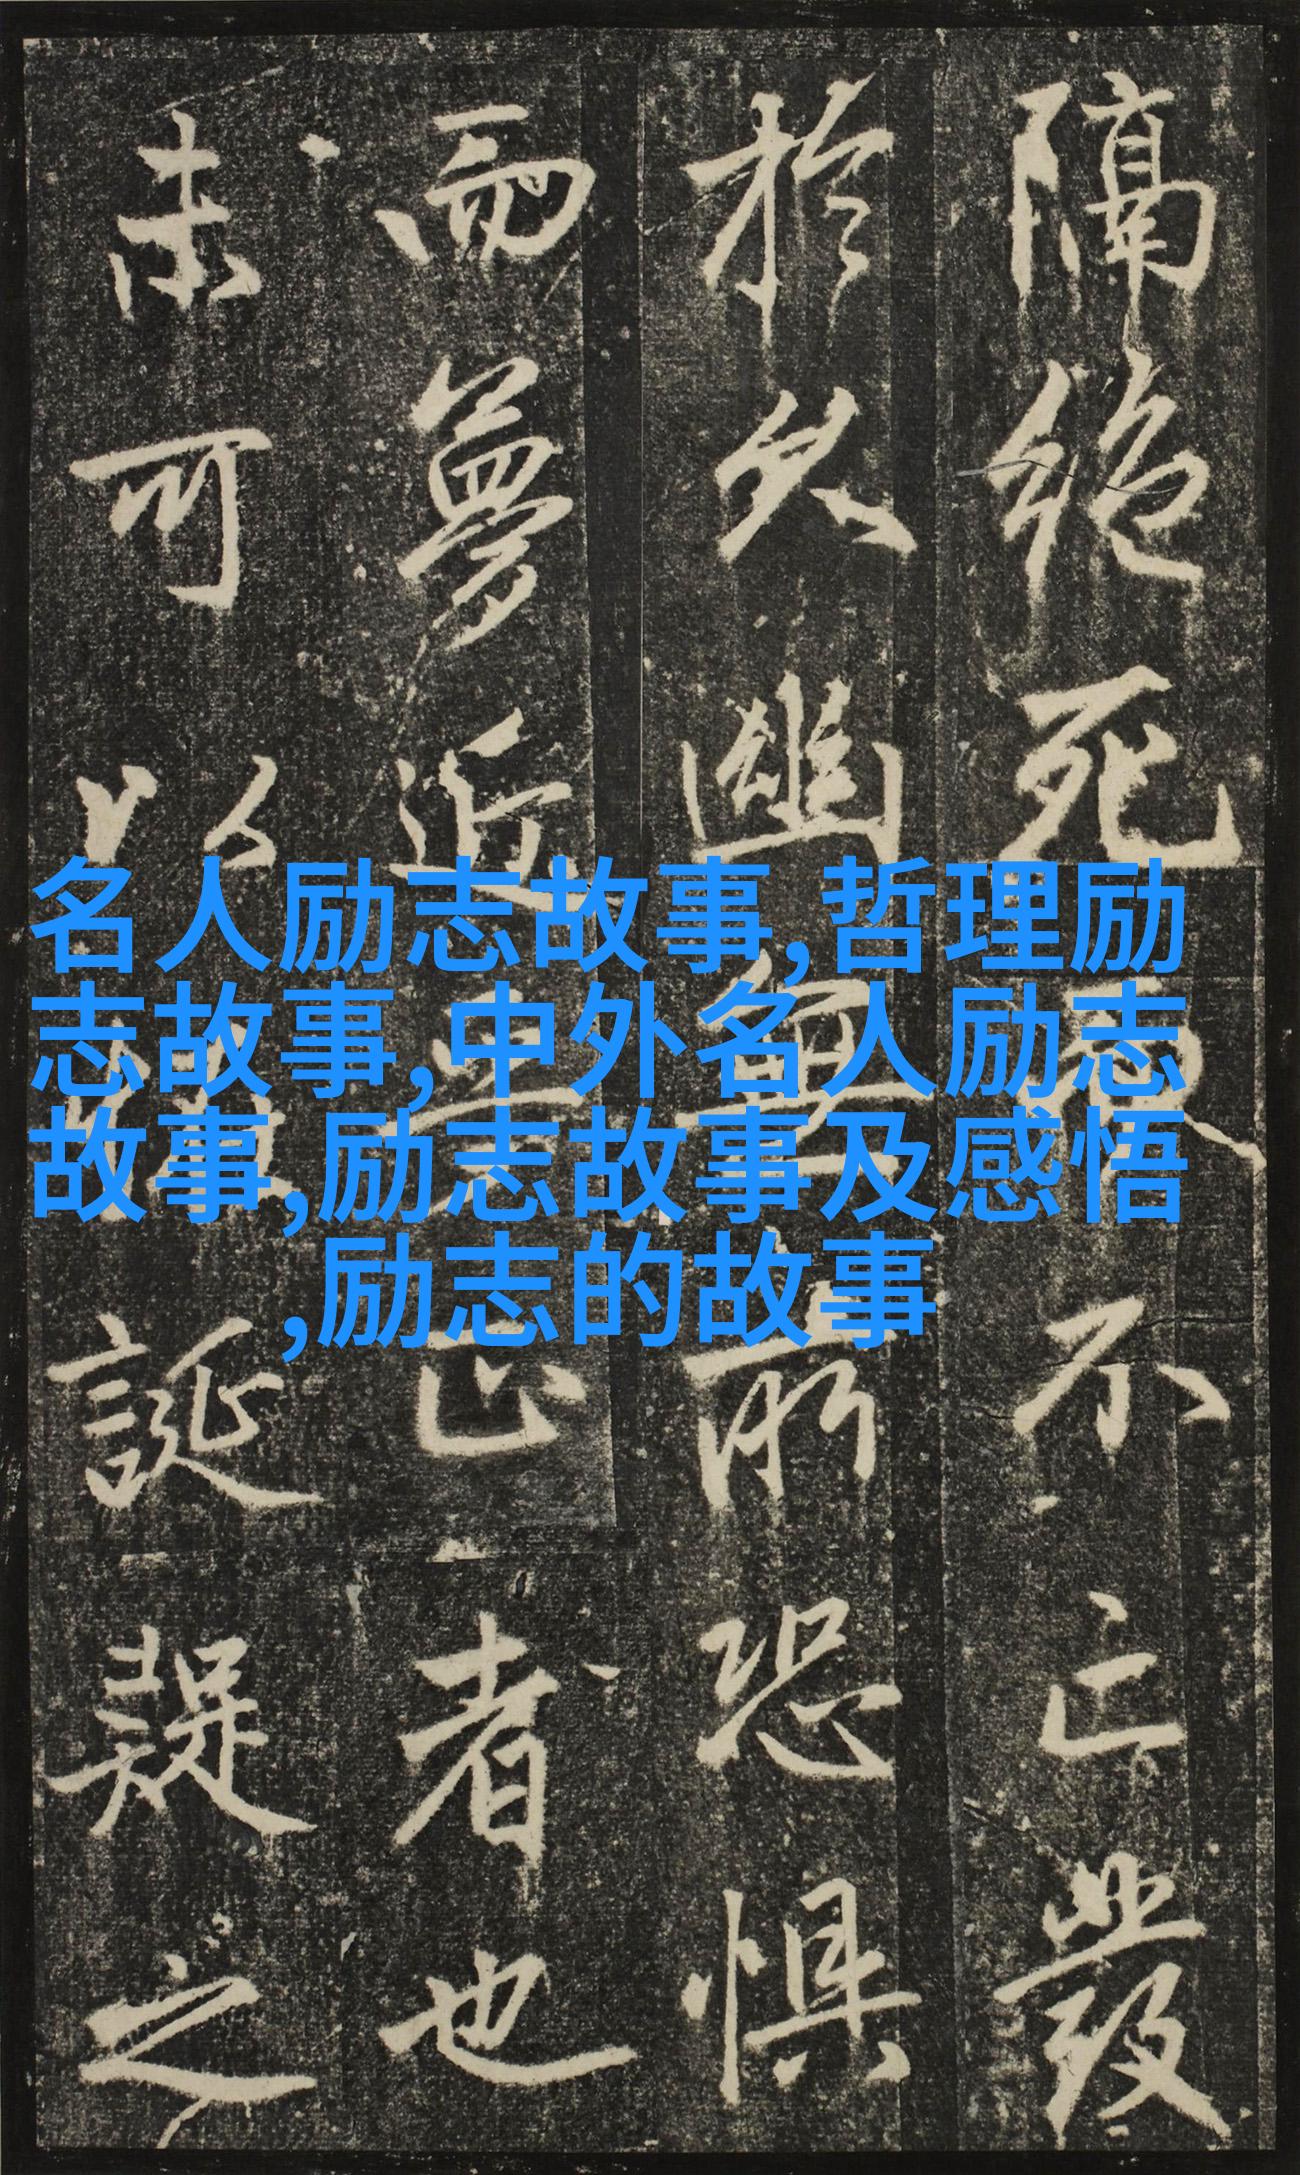 名人励志故事,哲理励
志故事,中外名人励志
故事,励志故事及感悟
,励志的故事
隔絕死不亡發
於久幽無所恐懼
而夢近正者也
未可以誕疑之